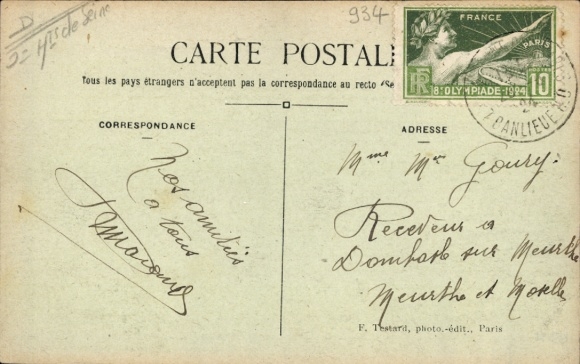 D
2= Hts de Seine
934
FRANCE
PARIS
RF
8E OLYMPIADE-1924
10
7 BANLIEUE
CARTE POSTALE
Tous les pays étrangers n'acceptent pas la correspondance au recto (Se
CORRESPONDANCE
ADRESSE
Nos amitiés
a tous
Mme Mr Goury.
Receveur a
Dombasle sur Meurthe
Meurthe et Moselle
F. Testard, photo.-édit., Paris